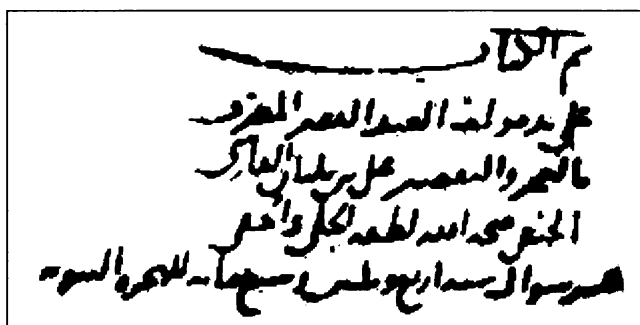 تم الكتاب
على يد مولفه العبد الفقير المعترف
بالعجز والتقصير علي بن بلبان الفارسي
الحنفي منحه الله لطفه الجلي والخفي
عشر شوال سنة اربع وثلثين وسبع مائة للهجرة النبوية